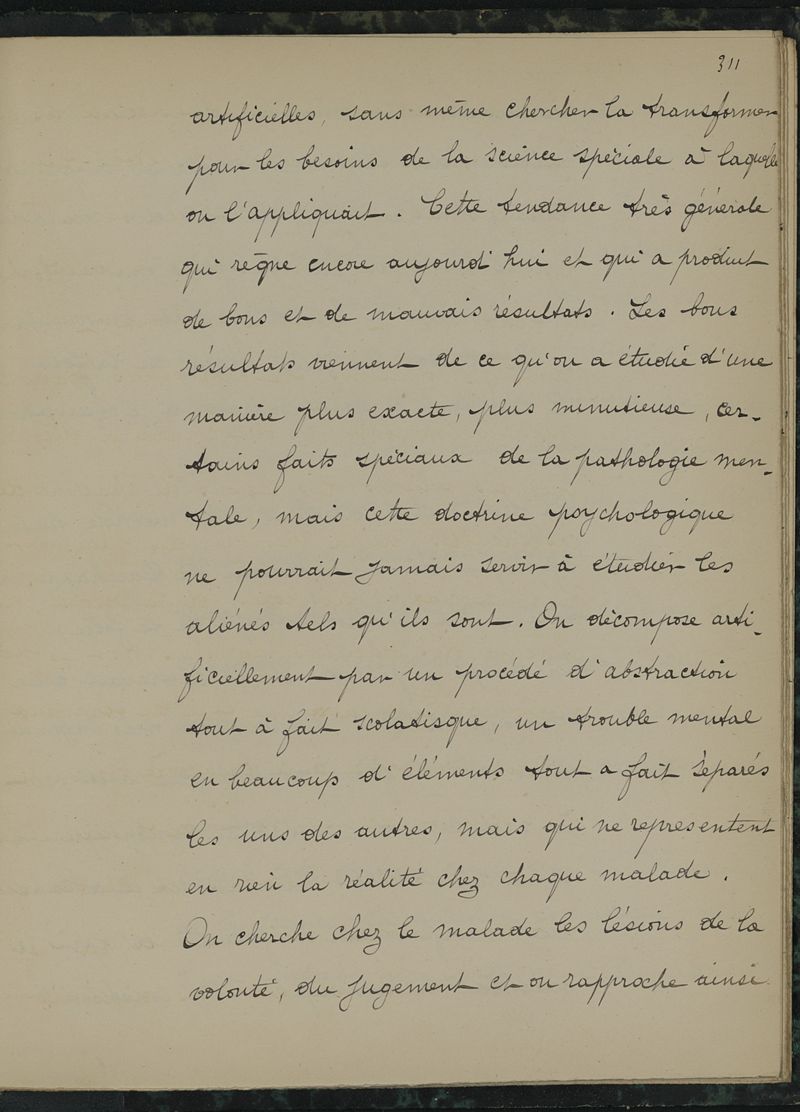 311
artificielles, sans même chercher la transformer
pour les besoins de la science spéciale à laquelle
on l'appliquait. Cette tendance très générale
qui règne encore aujourd'hui et qui a produit
de bons et de mauvais résultats. Les bons
résultats viennent de ce qu'on a étudié d'une
manière plus exacte, plus minutieuse, cer-
tains faits spéciaux de la pathologie men-
tale, mais cette doctrine psychologique
ne pourrait jamais servir à étudier les
aliénés tels qu'ils sont. On décompose arti-
ficiellement par un procédé d'abstraction
tout à fait scolatisque, un trouble mental
en beaucoup d'éléments tout a fait séparés
les uns des autres, mais qui ne representent
en rien la réalité chez chaque malade.
On cherche chez le malade les lésions de la
volonté, du jugement et on rapproche ainsi